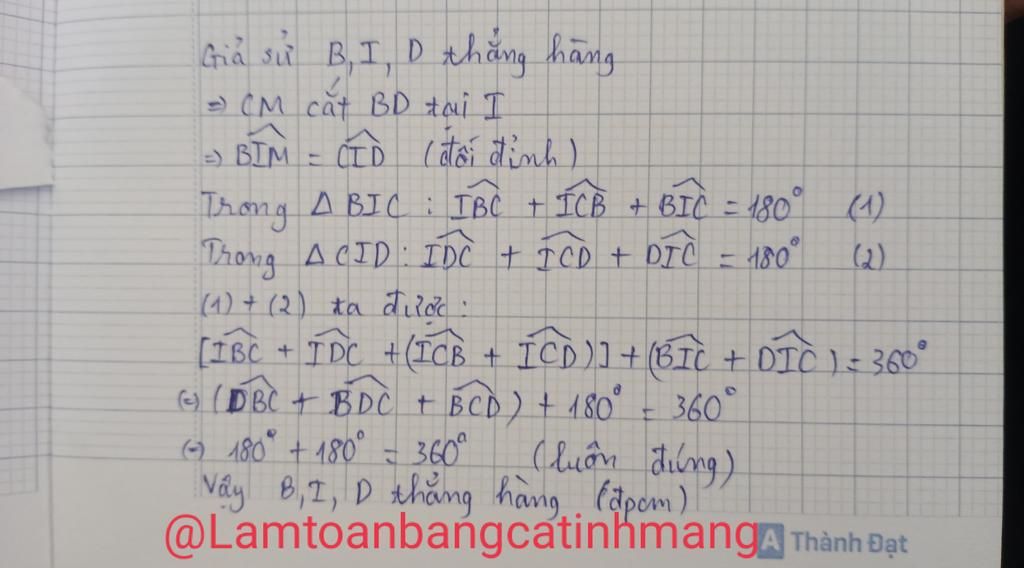 Giả sử B, I, D thẳng hàng
=> CM cắt BD tại I
=> BIM = CID (đối đỉnh)
Trong Δ BIC : IBC + ICB + BIC = 180° (1)
Trong Δ CID : IDC + ICD + DIC = 180° (2)
(1) + (2) ta được :
[IBC + IDC + (ICB + ICD)] + (BIC + DIC) = 360°
(=) (DBC + BDC + BCD) + 180° = 360°
(=) 180° + 180° = 360° (luôn đúng)
Vậy B, I, D thẳng hàng (đpcm)
@Lamtoanbangcatinhmang
A Thành Đạt